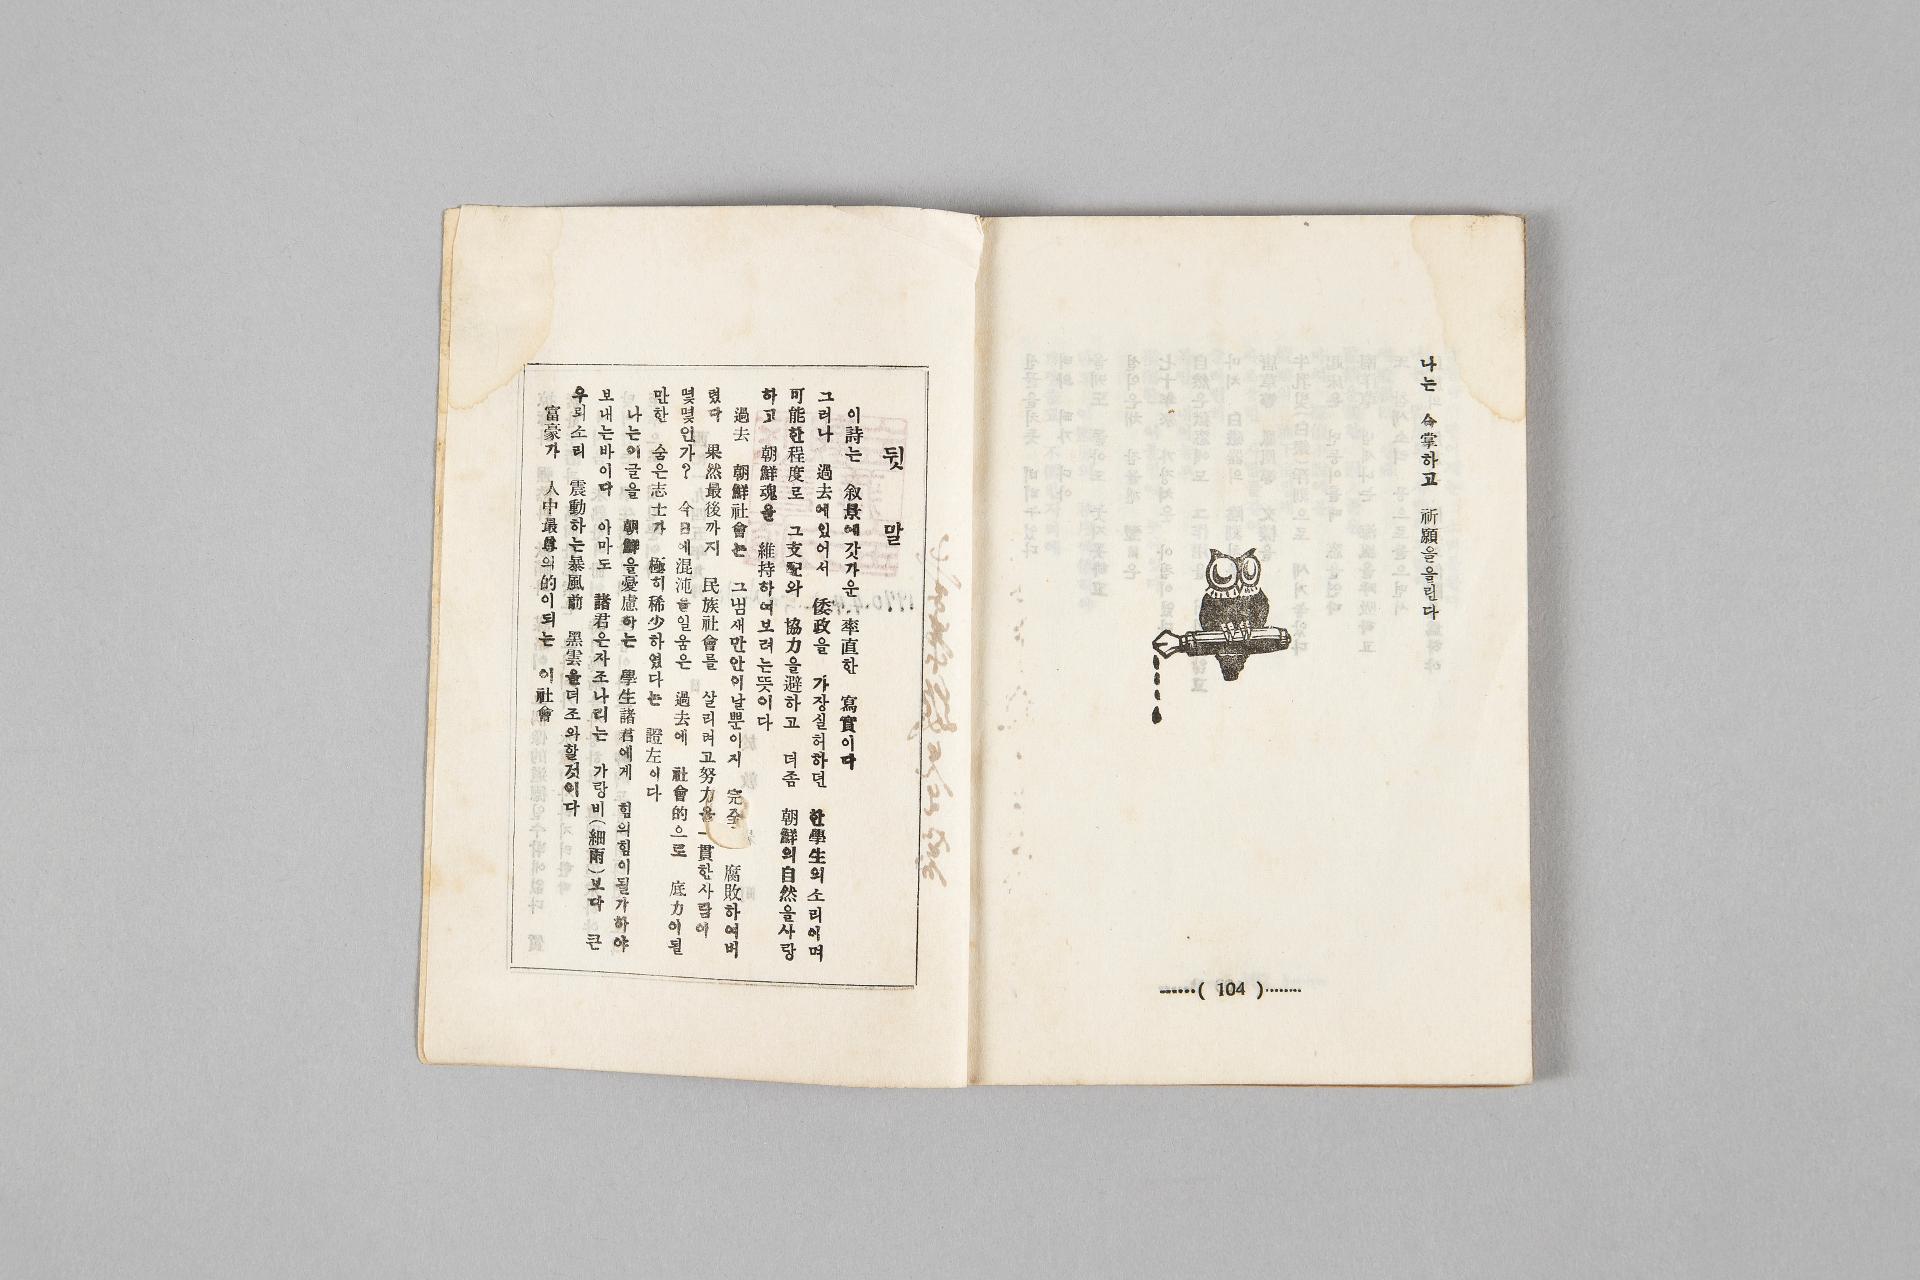 나는 合掌하고 祈願을올린다
……( 104 )………
뒷말
이詩는 叙景에갓가운 率直한 寫實이다
그러나 過去에있어서 倭政을 가장실허하던 한學生의소리이며
可能한程度로 그支配와 協力을避하고 더좀 朝鮮의自然을사랑
하고 朝鮮魂을 維持하여보려는뜻이다
過去 朝鮮社會는 그냄새만안이날뿐이지 完全 腐敗하여버
렸다 果然最後까지 民族社會를 살리려고努力을一貫한사람이
몇몇인가? 今日에混沌을일움은 過去에 社會的으로 底力이될
만한 숨은志士가 極히稀少하였다는 證左이다
나는이글을 朝鮮을憂慮하는 學生諸君에게 힘의힘이될가하야
보내는바이다 아마도 諸君은자조나리는 가랑비(細雨)보다 큰
우뢰소리 震動하는暴風前 黑雲을더조와할것이다
富豪가 人中最尊의的이되는 이社會